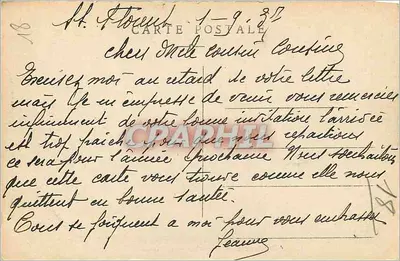 18
St. Florent 1-9-37
CARTE POSTALE
chers cousin Cousine
Excusez moi au retard de votre lettre
mais je m'empresse de venir vous remercier
infiniment de votre bonne invitation l'arrivée
est trop pour que nous repartions
ce sera pour l'année prochaine Nous souhaitons
que cette carte vous trouve comme elle nous
quittent en bonne santée.
Tous se joignent a moi pour vous embrasser
Jeanne
CPARAMA